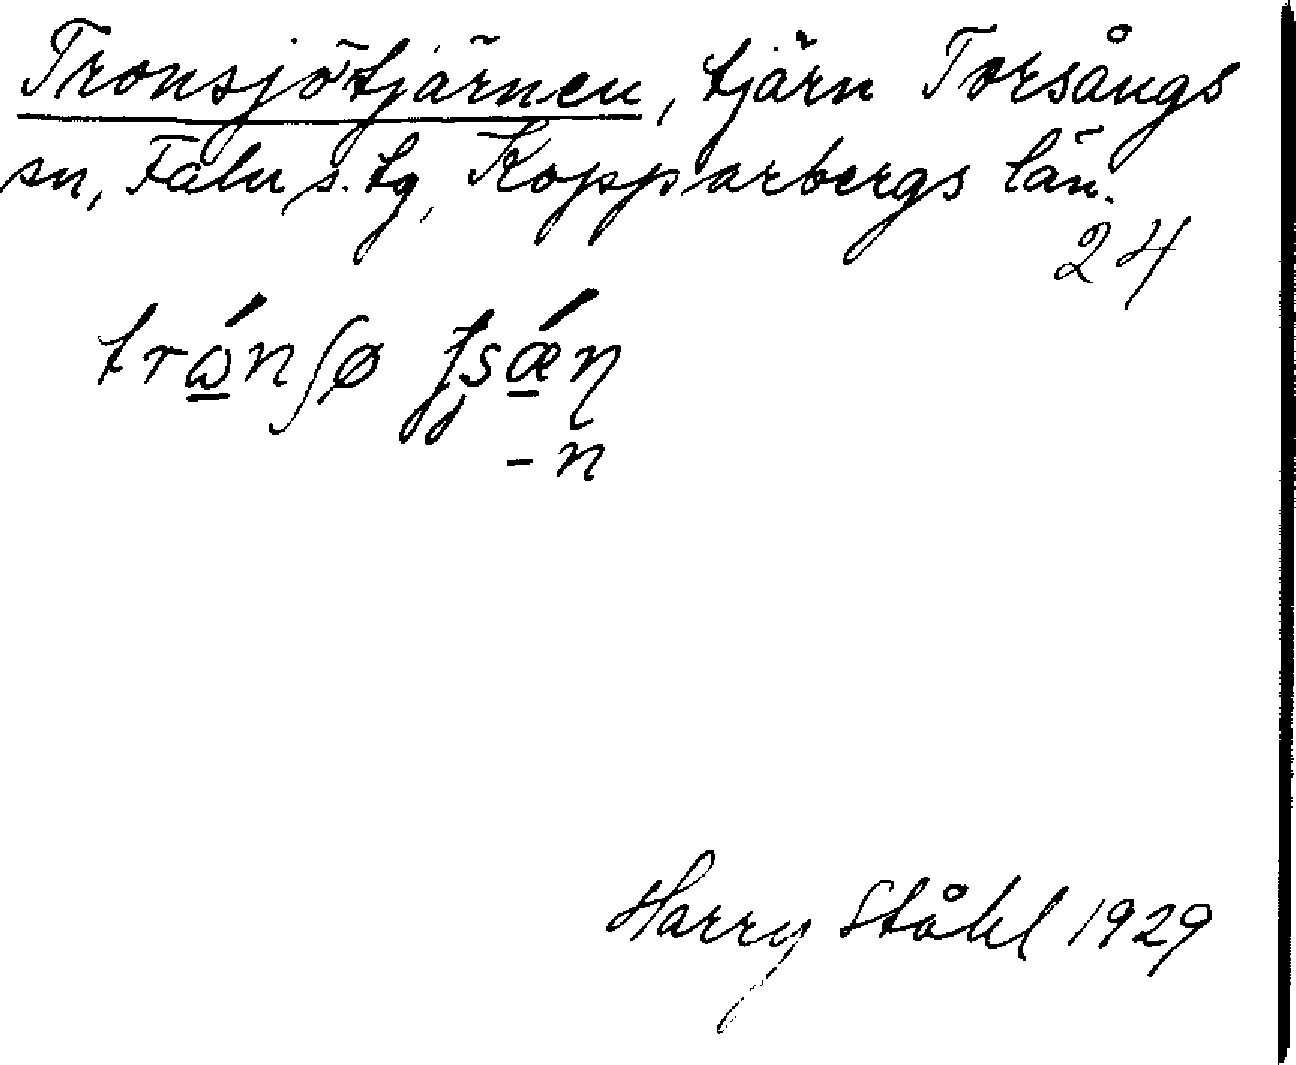 Tronsjötjärnen, tjärn Torsångs
sn, Falu s. tg, Kopparbergs län.
24
trώ̲nʃø ʈʂǽ̲ɳ
-n
Harry Ståhl 1929